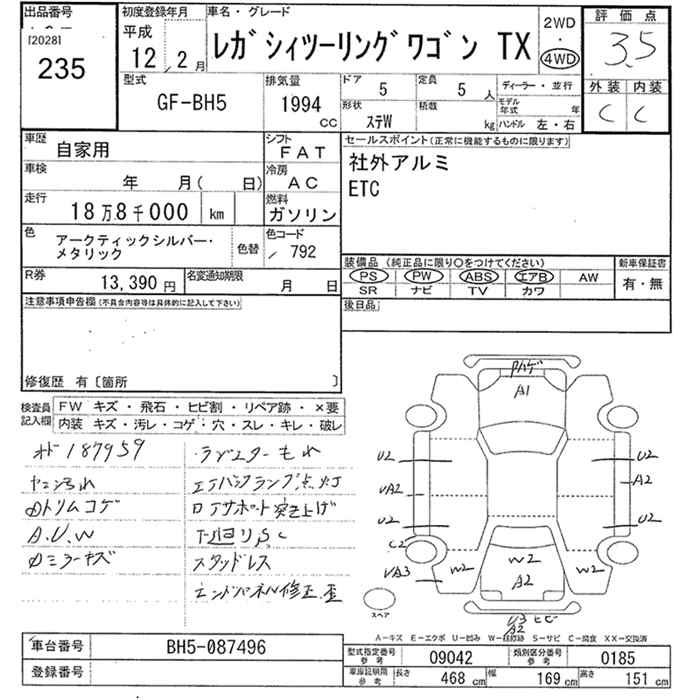 出品番号
[2028]
235
初度登録年月
平成
12 / 2月
車名・グレード
レガシィツーリングワゴン TX
2WD
・
4WD
評価点
3.5
外装 内装
C C
型式
GF-BH5
排気量
1994 CC
ドア 5
定員 5 人
形状 ステW
積載 kg
ディーラー・並行
モデル年式 年
ハンドル 左・右
車歴
自家用
シフト
FAT
車検
年 月( 日)
冷房
AC
走行
18万8千000 km
燃料
ガソリン
色
アークティックシルバー・
メタリック
色替
色コード
/ 792
R券
13,390 円
名変通知期限
月 日
セールスポイント(正常に機能するものに限ります)
社外アルミ
ETC
装備品 (純正品に限り○をつけてください)
PS PW ABS エアB AW
SR ナビ TV カワ
新車保証書
有・無
後日品
注意事項申告欄(不具合内容等は具体的に記入して下さい)
修復歴 有〔箇所 〕
検査員記入欄
FW キズ・飛石・ヒビ割・リペア跡・×要
内装 キズ・汚レ・コゲ・穴・スレ・キレ・破レ
187959
ラジエターもれ
エアバックランプ点灯
Dトリムコゲ
ロアサポート突き上げ
A.U.W
下廻りSC
Dミラーキズ
スタッドレス
エンドパネル修正歪
ハゲ
A1
U2
U2
VA2
A2
U2
U2
C2
VA3
W2
W2
A2
W2
U3 ヒビ
A2
スペア
A-キズ E-エクボ U-凹み W-補修跡 S-サビ C-腐食 XX-交換済
車台番号
BH5-087496
登録番号
型式指定番号
参考
09042
類別区分番号
参考
0185
車庫証明用
参考
長さ 468 cm
幅 169 cm
高さ 151 cm